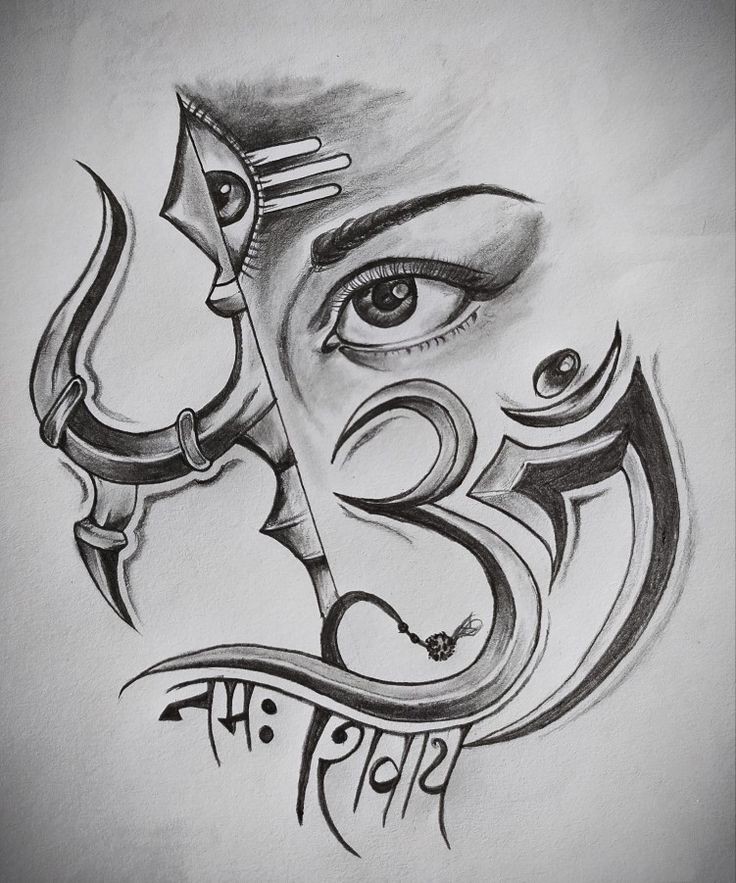 ॐ
नमः शिवाय